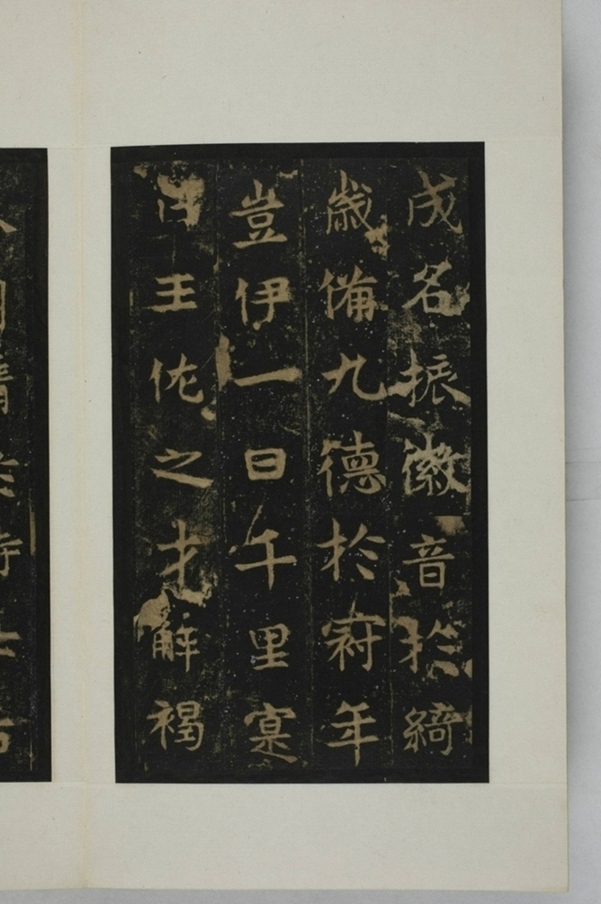 成名振徽音於綺
歳備九德於冠年
豈伊一日千里寔
王佐之才解褐